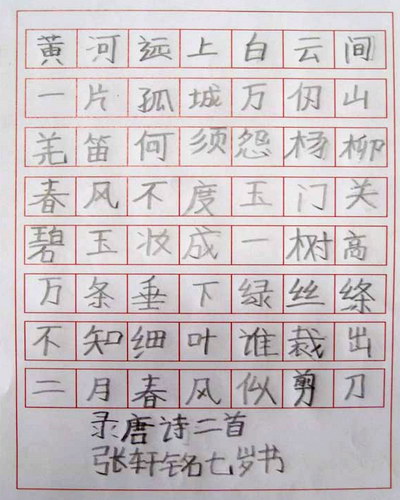 黄河远上白云间
一片孤城万仞山
羌笛何须怨杨柳
春风不度玉门关
碧玉妆成一树高
万条垂下绿丝绦
不知细叶谁裁出
二月春风似剪刀
录唐诗二首
张轩铭七岁书